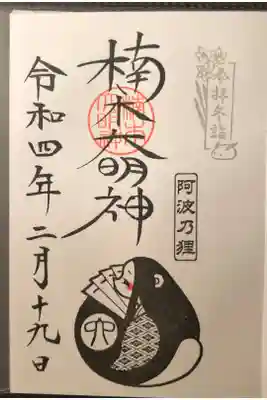 楠木大明神
阿波乃狸
令和四年二月十九日
六